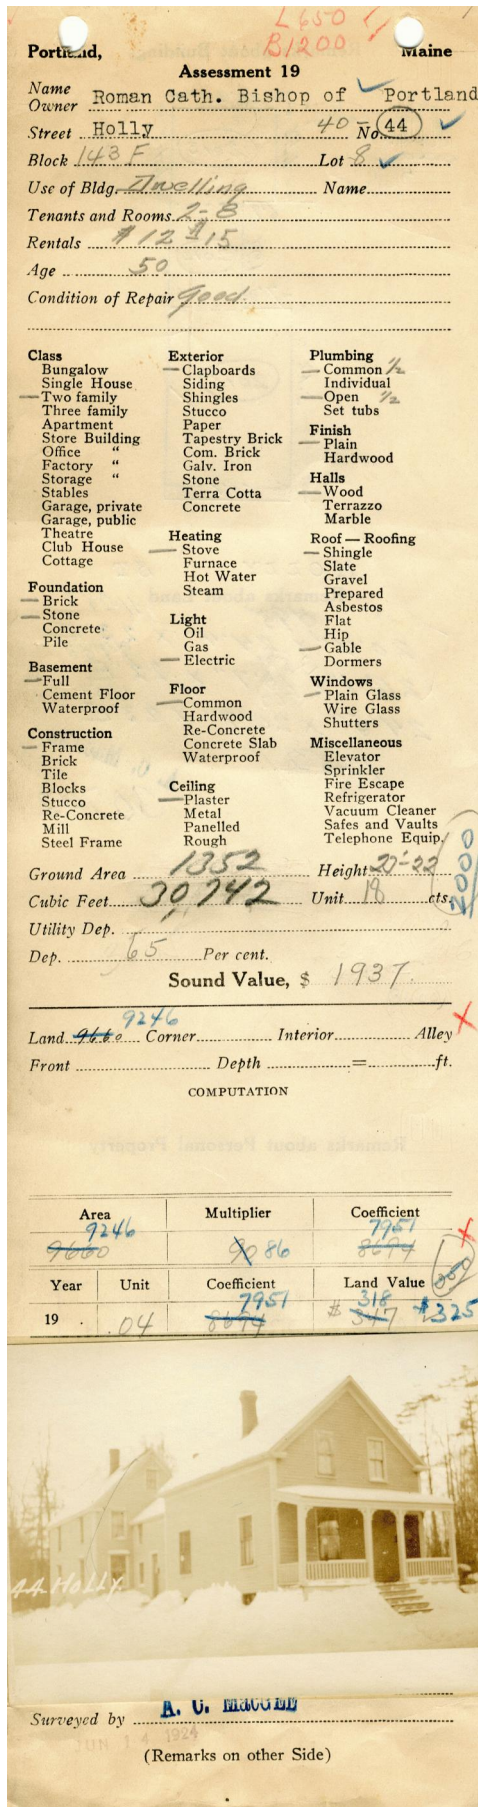 L 650
B 1200
Portland, Maine
Assessment 19
Name
Owner Roman Cath. Bishop of Portland
Street Holly 40- No. 44
Block 143 F Lot 8
Use of Bldg. Dwelling Name
Tenants and Rooms 2-8
Rentals $12 $15
Age 50
Condition of Repair good
Class
Bungalow
Single House
Two family
Three family
Apartment
Store Building
Office "
Factory "
Storage "
Stables
Garage, private
Garage, public
Theatre
Club House
Cottage
Foundation
Brick
Stone
Concrete
Pile
Basement
Full
Cement Floor
Waterproof
Construction
Frame
Brick
Tile
Blocks
Stucco
Re-Concrete
Mill
Steel Frame
Exterior
Clapboards
Siding
Shingles
Stucco
Paper
Tapestry Brick
Com. Brick
Galv. Iron
Stone
Terra Cotta
Concrete
Heating
Stove
Furnace
Hot Water
Steam
Light
Oil
Gas
Electric
Floor
Common
Hardwood
Re-Concrete
Concrete Slab
Waterproof
Ceiling
Plaster
Metal
Panelled
Rough
Plumbing
Common 1/2
Individual
Open 1/2
Set tubs
Finish
Plain
Hardwood
Halls
Wood
Terrazzo
Marble
Roof — Roofing
Shingle
Slate
Gravel
Prepared
Asbestos
Flat
Hip
Gable
Dormers
Windows
Plain Glass
Wire Glass
Shutters
Miscellaneous
Elevator
Sprinkler
Fire Escape
Refrigerator
Vacuum Cleaner
Safes and Vaults
Telephone Equip.
2000
Ground Area 1352 Height 20-22
Cubic Feet 30,742 Unit 18 cts.
Utility Dep.
Dep. 65 Per cent.
Sound Value, $ 1937
9246
Land 9660 Corner Interior Alley
Front Depth = ft.
COMPUTATION
Area Multiplier Coefficient
9246 7951
9660 90 86 8694
Year Unit Coefficient Land Value
7951 318
19 .04 8694 $ 347 $325
44 HOLLY
Surveyed by A. C. MacGEE
JUN 14 1924
(Remarks on other Side)